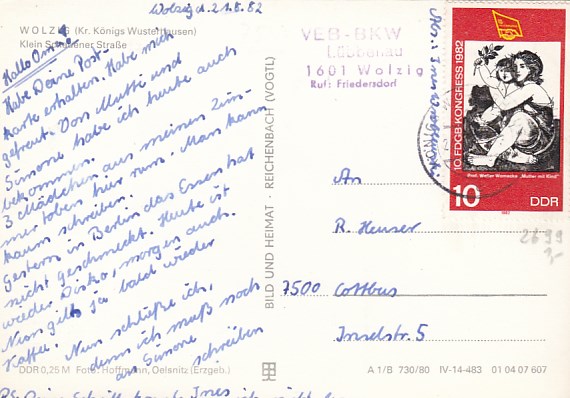 Wolzig d. 21.8.82
WOLZIG (Kr. Königs Wusterhausen)
Klein Schauener Straße
Hallo Oma!
Habe Deine Post-
karte erhalten. Habe mich
gefreut. Von Mutti und
Simone habe ich heute auch
bekommen.
3 Mädchen aus meinen Zim-
mer toben hier rum. Man kann
kaum schreiben.
Gestern in Berlin das Essen hat
nicht geschmeckt. Heute ist
wieder Disko, morgen auch.
Nun gehts ja bald wieder
Kaffee.
Nun schließe ich,
denn ich muß noch
an Simone schreiben
Ines
DDR 0,25 M Foto: Hoffmann, Oelsnitz (Erzgeb.)
BILD UND HEIMAT · REICHENBACH (VOGTL)
VEB-BKW
Lübbenau
1601 Wolzig
Ruf: Friedersdorf
10. FDGB-KONGRESS 1982
Prof. Walter Womacka "Mutter mit Kind"
10 DDR
1982
2699
3,-
An
R. Heuser
7500 Cottbus
Inselstr. 5
A 1/B 730/80 IV-14-483 01 04 07 607